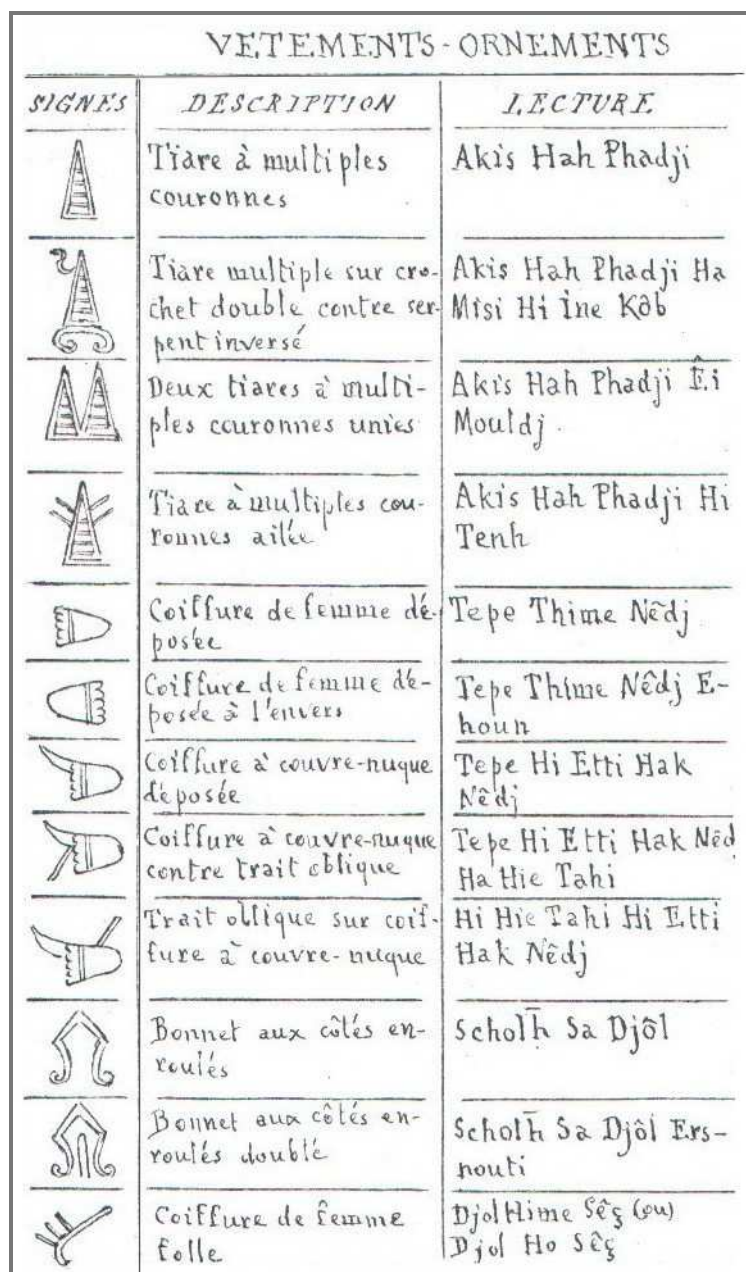 VETEMENTS - ORNEMENTS
SIGNES DESCRIPTION LECTURE
Tiare à multiples
couronnes
Akis Hah Phadji
Tiare multiple sur cro-
chet double contre ser-
pent inversé
Akis Hah Phadji Ha
Misi Hi Ine Kôb
Deux tiares à multi-
ples couronnes unies
Akis Hah Phadji Êi
Mouldj.
Tiare à multiples cou-
ronnes ailée
Akis Hah Phadji Hi
Tenh
Coiffure de femme dé-
posée
Tepe Thime Nêdj.
Coiffure de femme dé-
posée à l'envers
Tepe Thime Nêdj E-
houn
Coiffure à couvre-nuque
déposée
Tepe Hi Etti Hak
Nêdj
Coiffure à couvre-nuque
contre trait oblique
Tepe Hi Etti Hak Nêd
Ha Hie Tahi
Trait oblique sur coif-
fure à couvre-nuque
Hi Hie Tahi Hi Etti
Hak Nêdj
Bonnet aux côtés en-
roulés
Scholh̄ Sa Djôl
Bonnet aux côtés en-
roulés doublé
Scholh̄ Sa Djôl Ers-
nouti
Coiffure de femme
folle
Djol Hime Sêç (ou)
Djol Ho Sêç